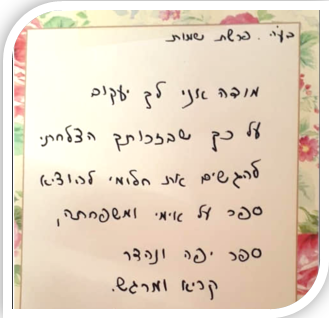 בע"ה. פרשת שמות
מודה אני לך יעקוב
על כך שבזכותך הצלחתי
להגשים את חלומי להוציא
ספר על אימי ומשפחתה,
ספר יפה ונהדר
קריא ומרגש.